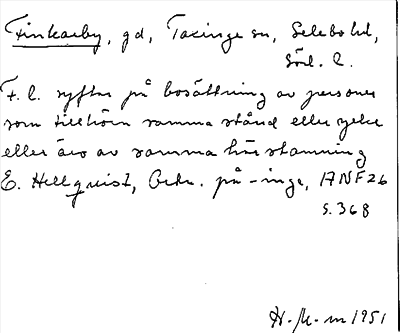 Finkarby, gd, Taxinge sn, Selebo hd,
Södl. l.
F. l. syftar på bosättning av personer
som tillhöra samma stånd eller yrke
eller äro av samma härstamning
E. Hellquist, Ortn. på -inge, ANF 26
s. 368
H.-M. m 1951